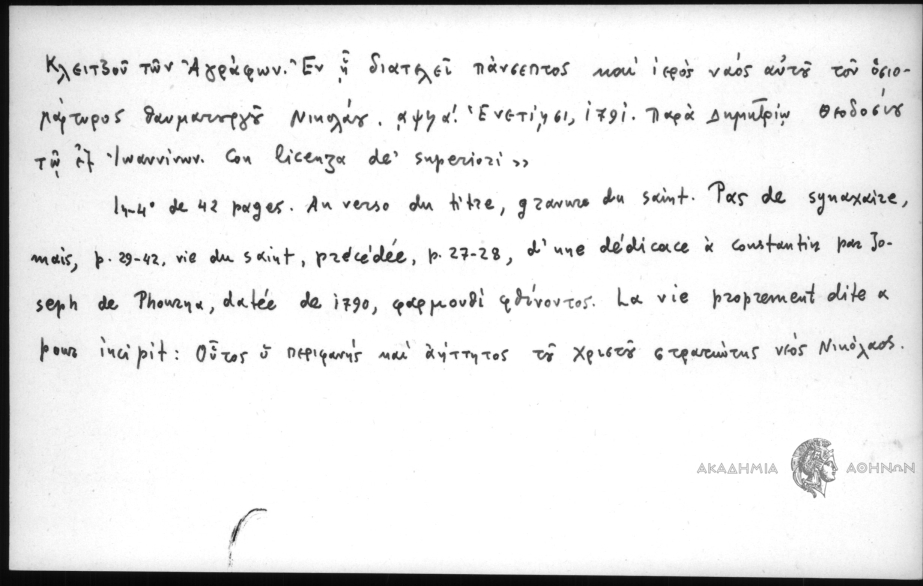 Κλειτζοῦ τῶν Ἀγράφων. Ἐν ᾗ διατελεῖ πάνσεπτος καὶ ἱερὸς ναὸς αὐτοῦ τοῦ ὁσιο-
μάρτυρος θαυματουργοῦ Νικολάου. ͵αψϟα΄. Ἐνετίῃσι, 1791. Παρὰ Δημητρίῳ Θεοδοσίου
τῷ ἐξ Ἰωαννίνων. Con licenza de' superiori »
In-4° de 42 pages. Au verso du titre, gravure du saint. Pas de synaxaire,
mais, p. 29-42, vie du saint, précédée, p. 27-28, d'une dédicace à Constantin par Jo-
seph de Phourna, datée de 1790, φαρμουθὶ φθίνοντος. La vie proprement dite a
pour incipit: Οὗτος ὁ περιφανὴς καὶ ἀήττητος τοῦ Χριστοῦ στρατιώτης νέος Νικόλαος.
ΑΚΑΔΗΜΙΑ ΑΘΗΝΩΝ